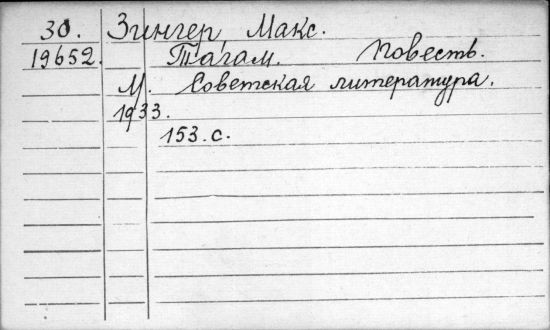 30. Зингер, Макс.
19652. Тагам. Повесть.
М. Советская литература.
1933.
153.с.